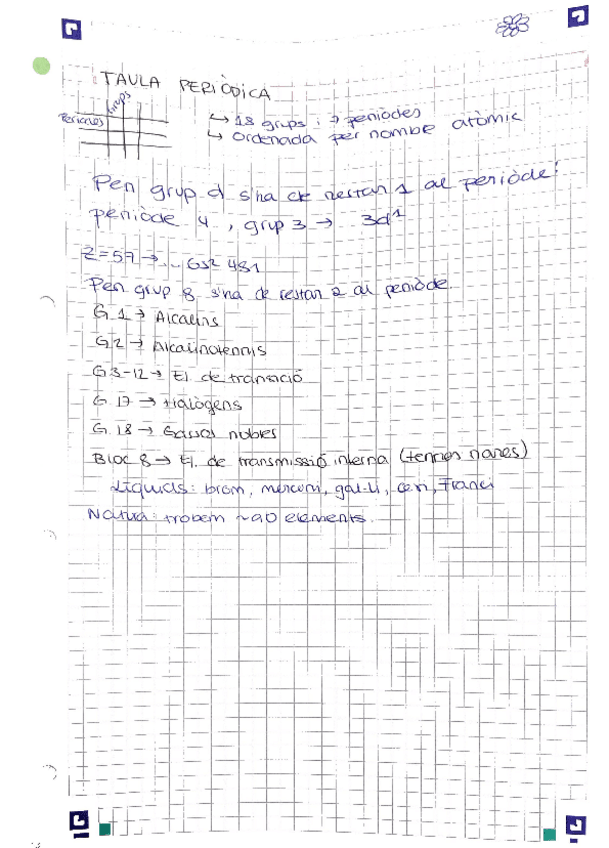 TAULA PERIÒDICA
Grups
Períodes
↳ 18 grups i 7 períodes
↳ Ordenada per nombre atòmic
Per grup d s'ha de restar 1 al període!
període 4, grup 3 → 3d¹
Z=57 → ... 6s² 4f1
Per grup f, s'ha de restar 2 al període.
G 1 → Alcalins
G 2 → Alcalinoterris
G 3-12 → El. de transició
G 17 → Halògens
G 18 → Gasos nobles
Bloc f → El. de transmissió interna (terres rares)
Líquids: brom, mercuri, gal·li, cesi, Franci
Natura: trobem ~90 elements.